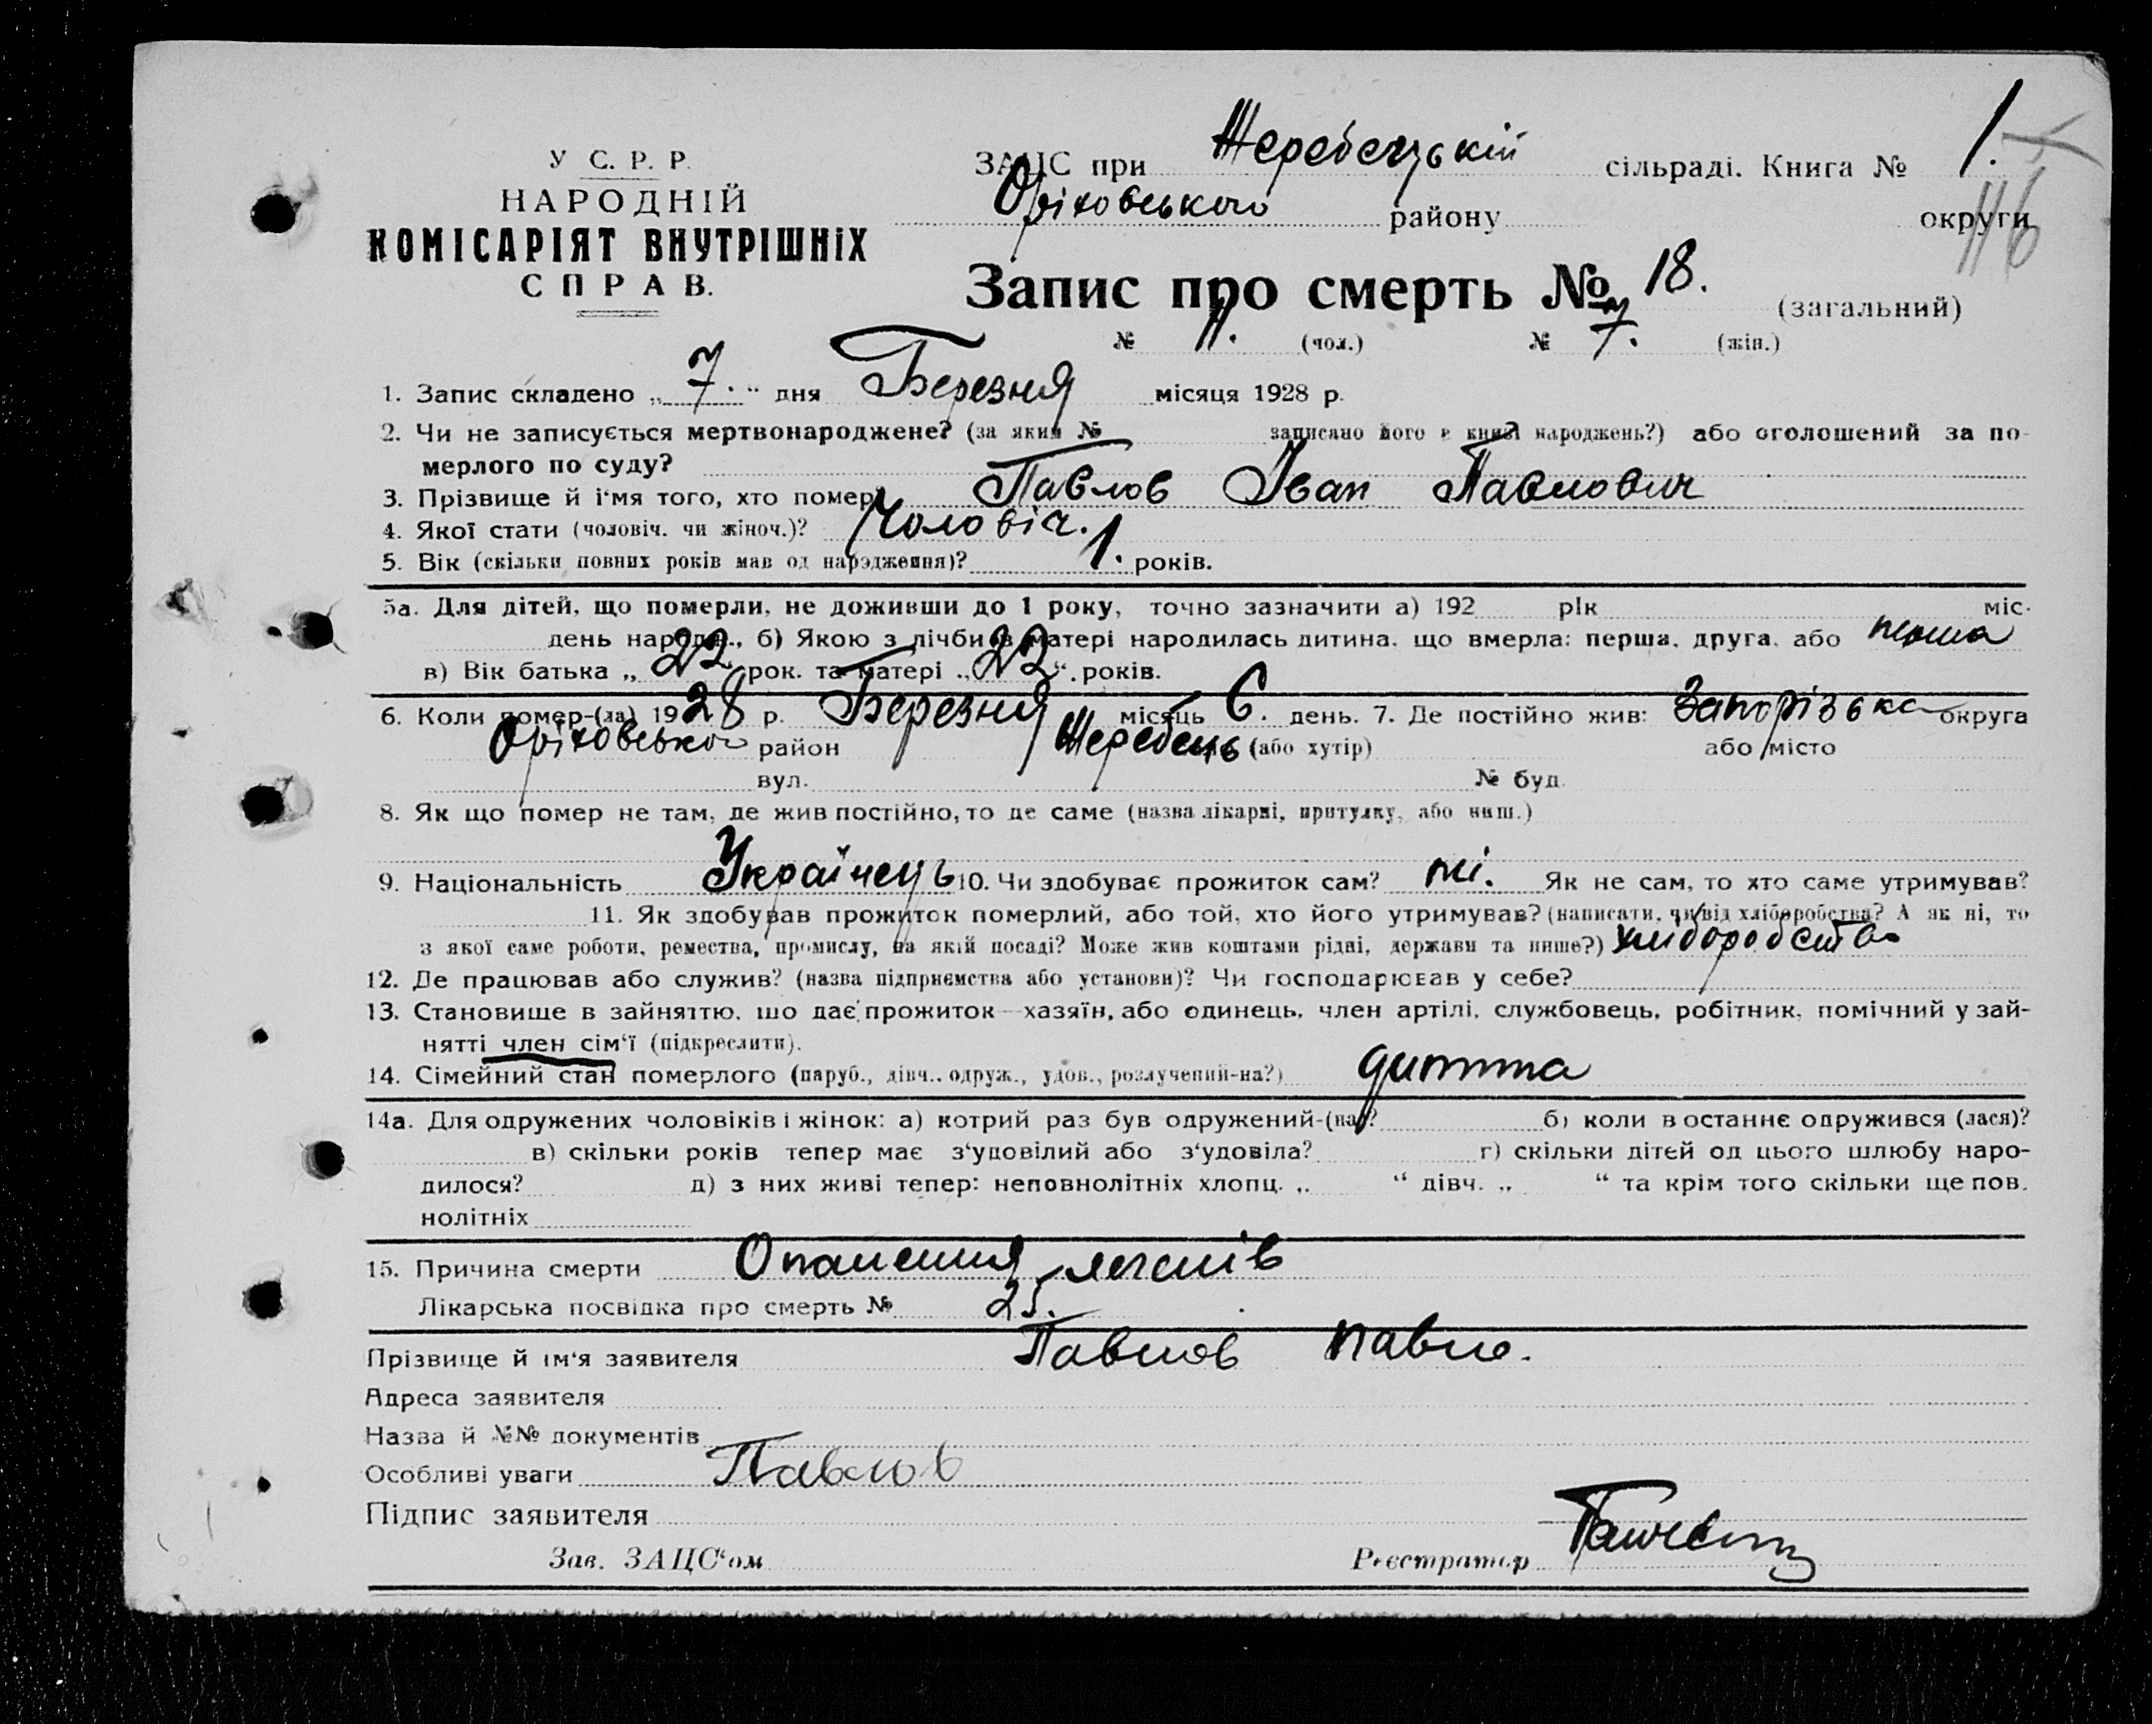 У С. Р. Р.
НАРОДНІЙ
КОМІСАРІЯТ ВНУТРІШНІХ
СПРАВ.
ЗАЦС при Жеребецькій сільраді. Книга № 1.
Оріховського району округи
116
Запис про смерть № 18. (загальний)
№ 11. (чол.) № 7. (жін.)
1. Запис складено „ 7. “ дня Березня місяця 1928 р.
2. Чи не записується мертвонароджене? (за яким № записано його в книзі народжень?) або оголошений за по-
мерлого по суду?
3. Прізвище й і‘мя того, хто помер Павлов Іван Павлович
4. Якої стати (чоловіч. чи жіноч.)? Чоловіч.
5. Вік (скільки повних років мав од народження)? 1. років.
5а. Для дітей, що померли, не доживши до 1 року, точно зазначити а) 192 рік міс.
день народж., б) Якою з лічби в матері народилась дитина, що вмерла: перша, друга, або перша
в) Вік батька „ 22 “ рок. та матері „ 22 “. років.
6. Коли помер-(ла) 1928 р. Березня місяць 6. день. 7. Де постійно жив: Запорізька округа
Оріховський район Жеребець (або хутір) або місто
вул. № буд.
8. Як що помер не там, де жив постійно, то де саме (назва лікарні, притулку, або инш.)
9. Національність Українець 10. Чи здобував прожиток сам? ні. Як не сам, то хто саме утримував?
11. Як здобував прожиток померлий, або той, хто його утримував? (написати, чи від хліборобства? А як ні, то
з якої саме роботи, ремества, промислу, на якій посаді? Може жив коштами рідні, держави та инше?) хліборобства
12. Де працював або служив? (назва підприємства або установи)? Чи господарював у себе?
13. Становище в зайняттю, що дає прожиток—хазяїн, або одинець, член артілі, службовець, робітник, помічний у зай-
нятті член сім‘ї (підкреслити).
14. Сімейний стан померлого (паруб., дівч., одруж., удов., розлучений-на?) дитина
14а. Для одружених чоловіків і жінок: а) котрий раз був одружений-(на)? б) коли в останнє одружився (лася)?
в) скільки років тепер має з‘удовілий або з‘удовіла? г) скільки дітей од цього шлюбу наро-
дилося? д) з них живі тепер: неповнолітніх хлопц. „ “ дівч. „ “ та крім того скільки ще пов.
нолітніх
15. Причина смерти Опалення легенів
Лікарська посвідка про смерть № 25.
Прізвище й ім‘я заявителя Павлов Павло.
Адреса заявителя
Назва й №№ документів
Особливі уваги Павлов
Підпис заявителя
Зав. ЗАЦС‘ом Реєстратор